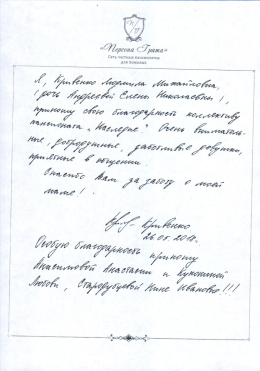 «Персона Грата»
Сеть частных пансионатов
для пожилых
Я, Кривенко Людмила Михайловна,
(дочь Андреевой Елены Николаевны),
приношу свою благодарность коллективу
пансионата „Наследие". Очень вниматель-
ные, добродушные, заботливые девушки,
приятные в общении.
Спасибо Вам за заботу о моей
маме!
Кривенко
Особую благодарность приношу
Анисимовой Анастасии и
Любови, Стародубцевой Нине Ивановне!!!